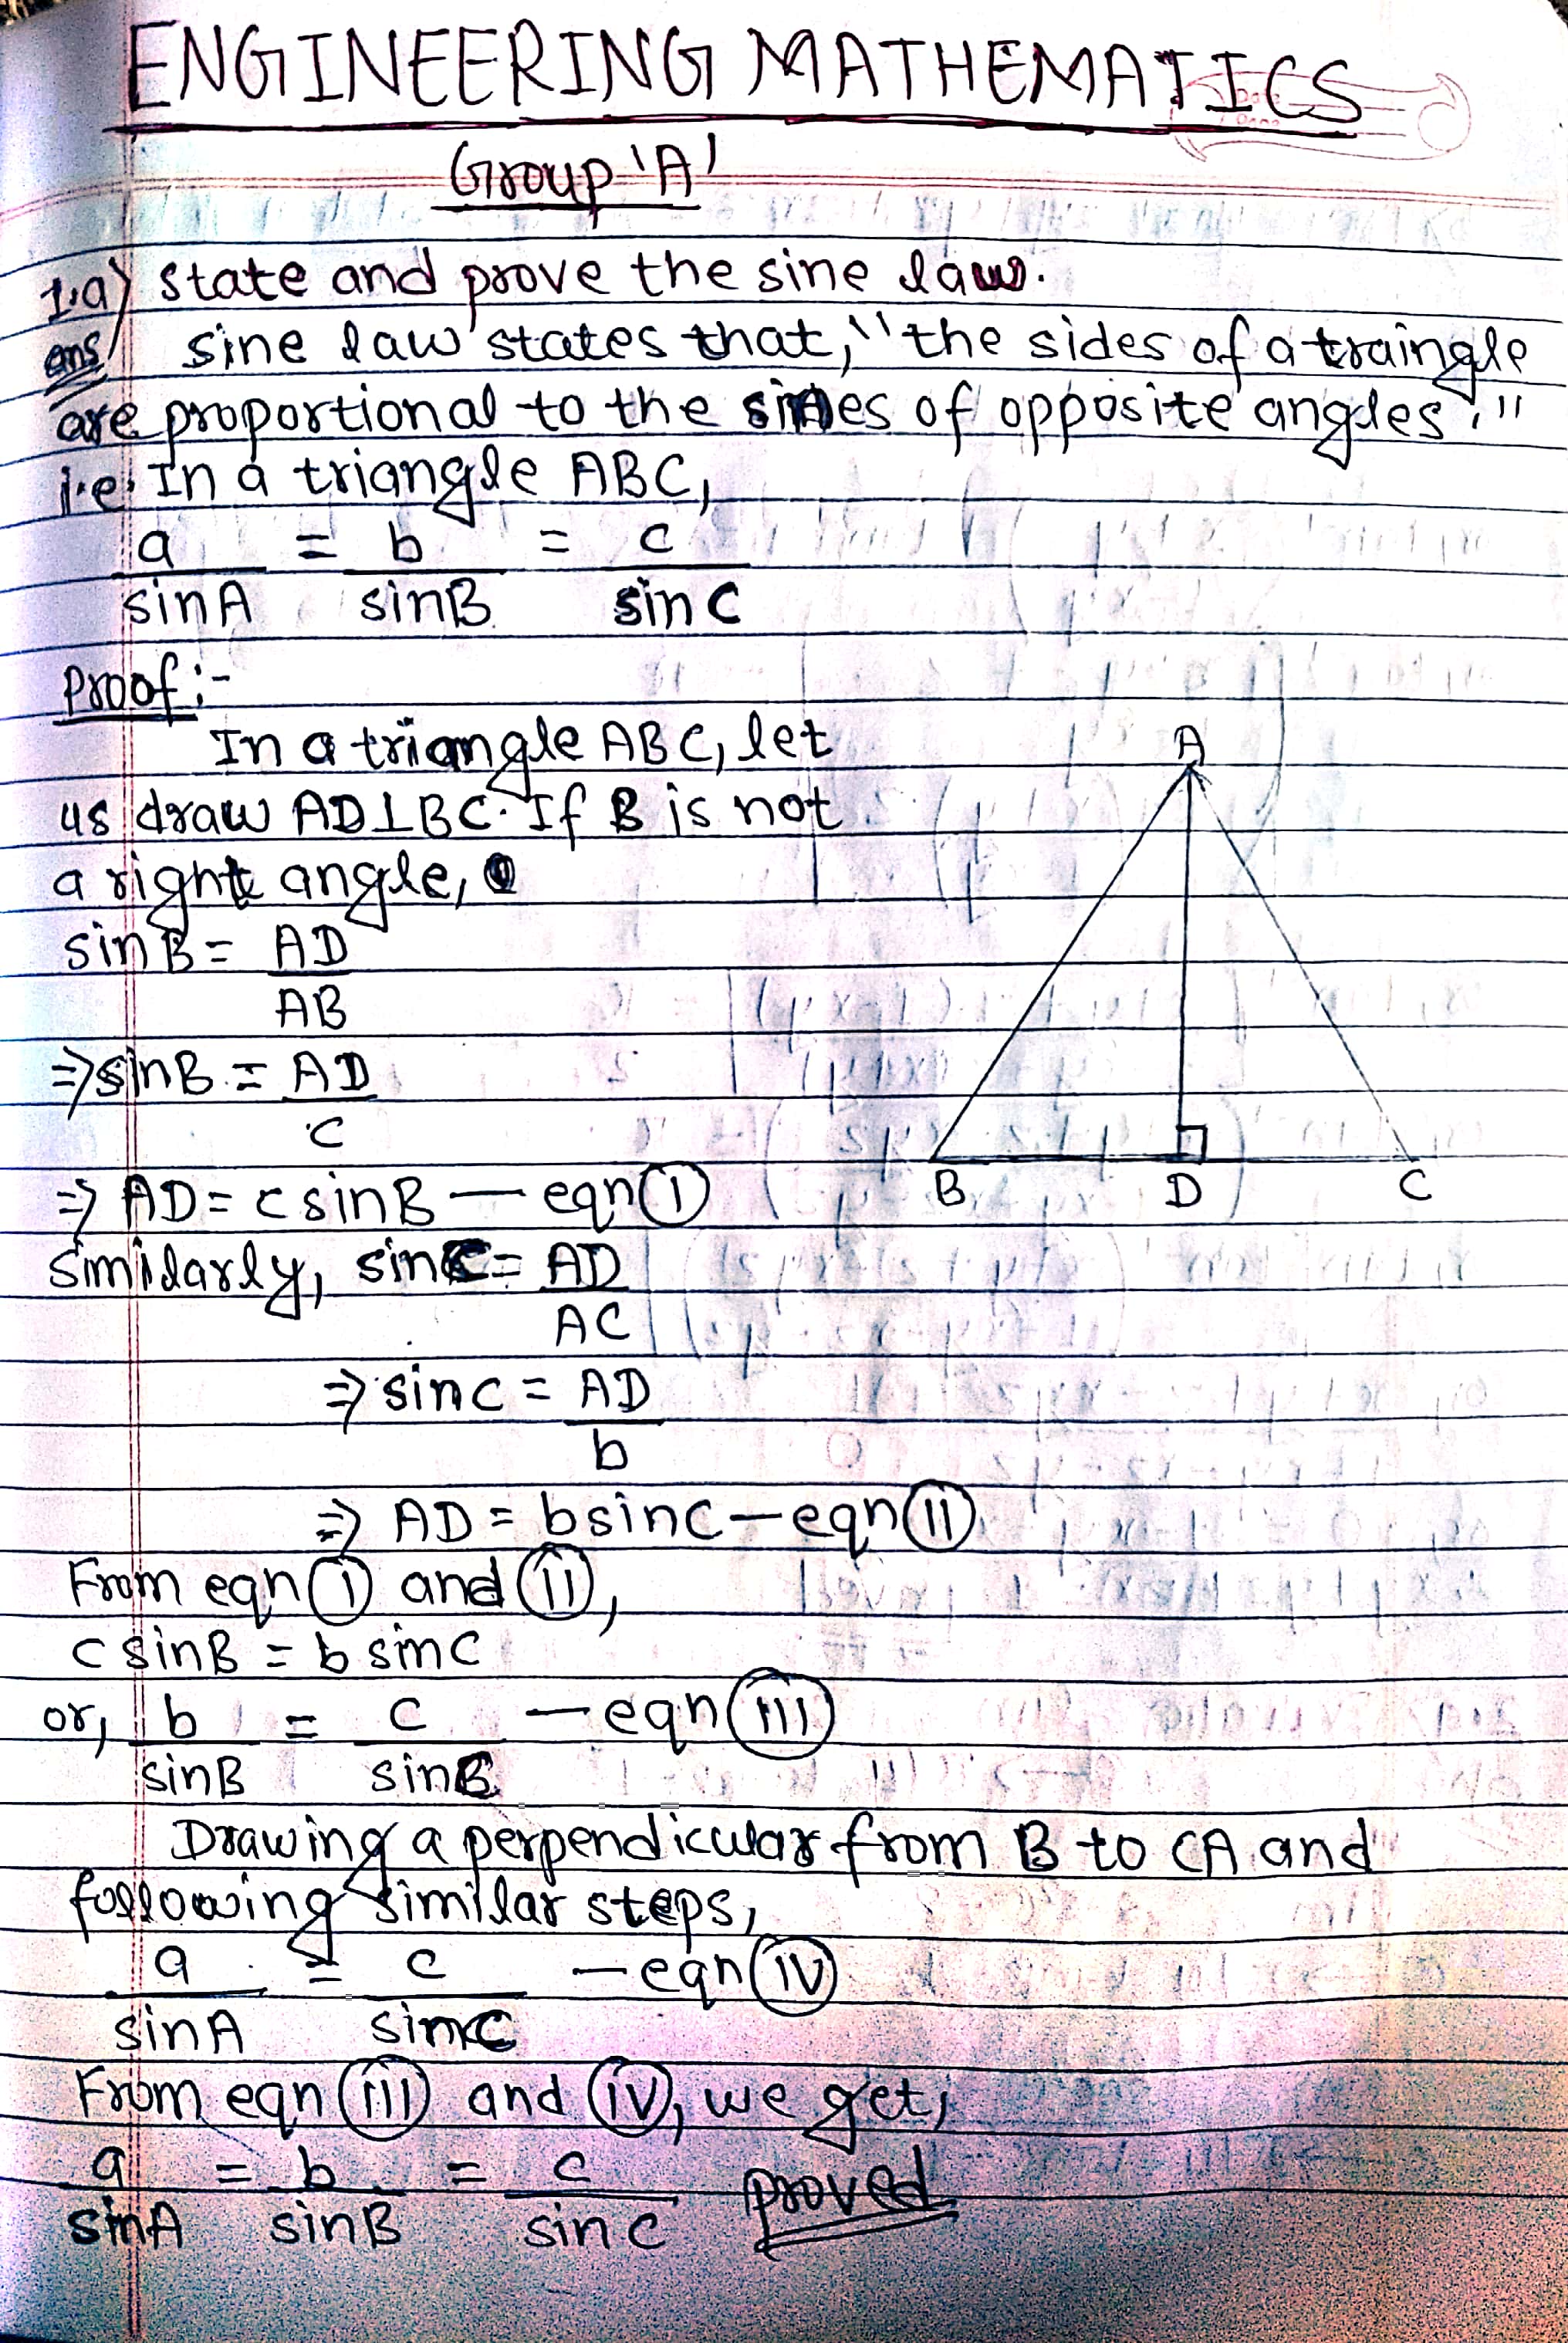 ENGINEERING MATHEMATICS
Group 'A'
1.a) state and prove the sine law.
ans/ sine law states that, "the sides of a traingle
are proportional to the sines of opposite angles."
i.e. In a triangle ABC,
a = b = c
sinA sinB sinC
Proof:-
In a triangle ABC, let
us draw AD⊥BC. If B is not
a right angle,
sinB = AD
AB
⇒ sinB = AD
c
⇒ AD = c sinB — eqn (i)
Similarly, sinC = AD
AC
⇒ sinC = AD
b
⇒ AD = b sinC — eqn (ii)
From eqn (i) and (ii),
c sinB = b sinC
or, b = c — eqn (iii)
sinB sinC
Drawing a perpendicular from B to CA and
following similar steps,
a = c — eqn (iv)
sinA sinC
From eqn (iii) and (iv), we get,
a = b = c proved
sinA sinB sinC
A
B D C